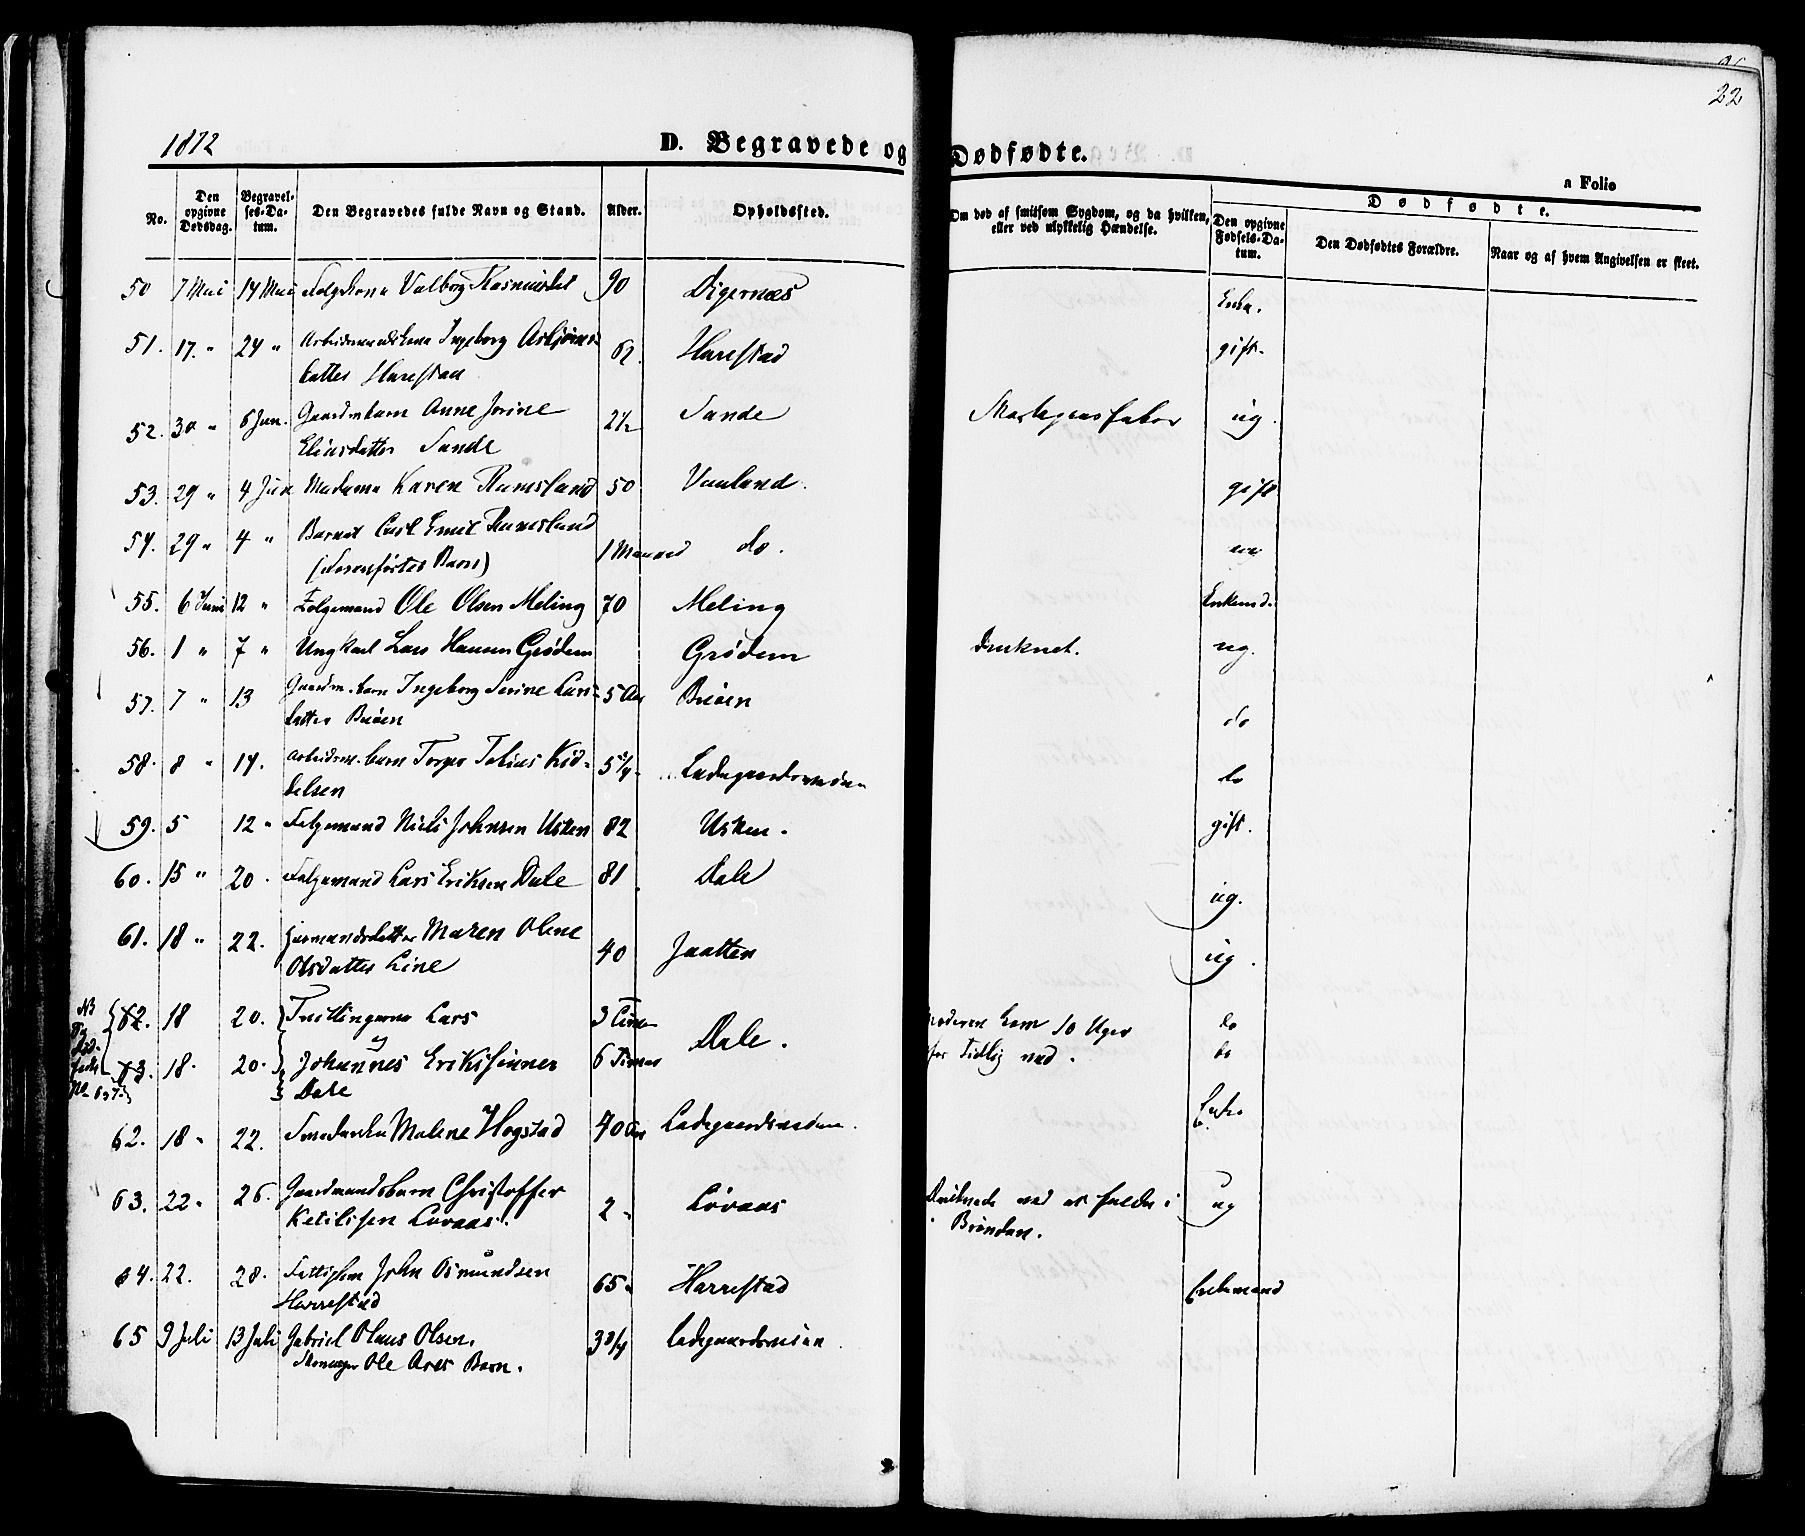 22
1872
D. Begravede og Dødfødte.
a Folio
No.
Den opgivne Dødsdag.
Begravelses-Datum.
Den Begravedes fulde Navn og Stand.
Alder.
Opholdssted.
Om død af smitsom Sygdom, og da hvilken, eller ved ulykkelig Hændelse.
Dødfødte.
Den opgivne Fødsels-Datum.
Den Dødfødtes Forældre.
Naar og af hvem Angivelsen er skeet.
50 7 Mai 14 Mai Folgekone Valborg Rasmusdt 90 Digernæs Enke.
51. 17. " 24 " Arbeidsmandskone Ingeborg Asbjørns- 62. Harestad gift.
datter Harestad
52. 30 " 6 Jun. Gaardm barn Anne Serine 2½ Sande ug.
Eliasdatter Sande
53. 29 " 4 Jun Madame Karen Ramsland 50 Vauland. gift
54. 29 " 4 " Barnet Carl Emil Ramsland 1 Maaned do. ug
(Foranførtes Barn)
55. 6 Juni 12 " Folgemand Ole Olsen Meling 70 Meling Enkemd.
56. 1 " 7 " Ungkarl Lars Hansen Grødem Grødem Druknet. ug.
57. 7 " 13 Gaardm. barn Ingeborg Serine Lars- 5 Aar Buøen do
datter Buøen
58. 8 " 14. Arbeidsm. barn Torger Tobias Kid- 5¾ Ladegaardsveien do
delsen
59. 5 12 " Folgemand Niels Johnsen Usken 82 Usken. gift.
60. 15 " 20. Folgemand Lars Eriksen Dale 81 Dale ug.
61. 18 " 22. Huusmandsdatter Maren Oline 40 Jaatten ug.
Olsdatter Line
NB
62. 18 20. Tvillingerne Lars 3 Timer Dale. Moderen kom 10 Uger do
og
63. 18. 20. Johannes Erikssønner 6 Timer for Tidlig ned. do
Dale
62. 18 " 22. Malene Hogstad 70 Aar Ladegaardsveien. Enke
63. 22 " 26. Gaardmandsbarn Christoffer 2 " Lövaas Druknede ved at falde i ug
Ketilssen Lövaas. Brønden.
64. 22. 28. Fattiglem John Osmundsen 65 " Harrestad Enkemand
Harrestad
65 9 Juli 13 Juli Gabriel Olaus Olsen. 3¾ Ladegaardsveien
Skomager Ole Ares Barn.